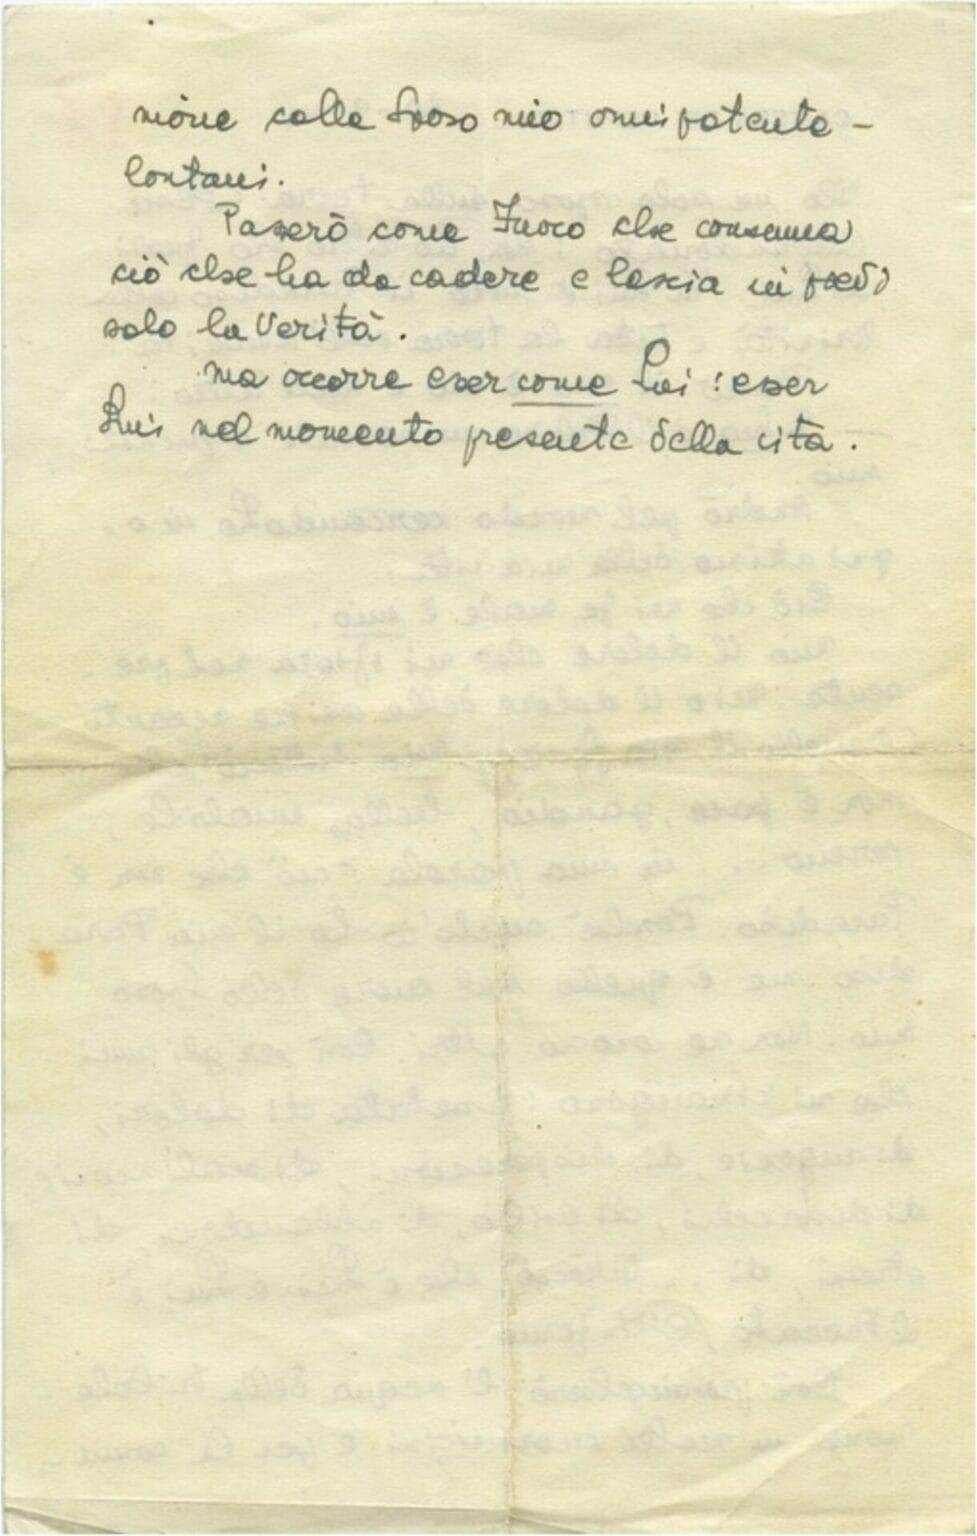 nione collo Sposo mio onnipotente –
lontani.
Passerò come Fuoco che consuma
ciò che ha da cadere e lascia in piedi
solo la Verità.
Ma occorre esser come Lui : esser
Lui nel momento presente della vita.